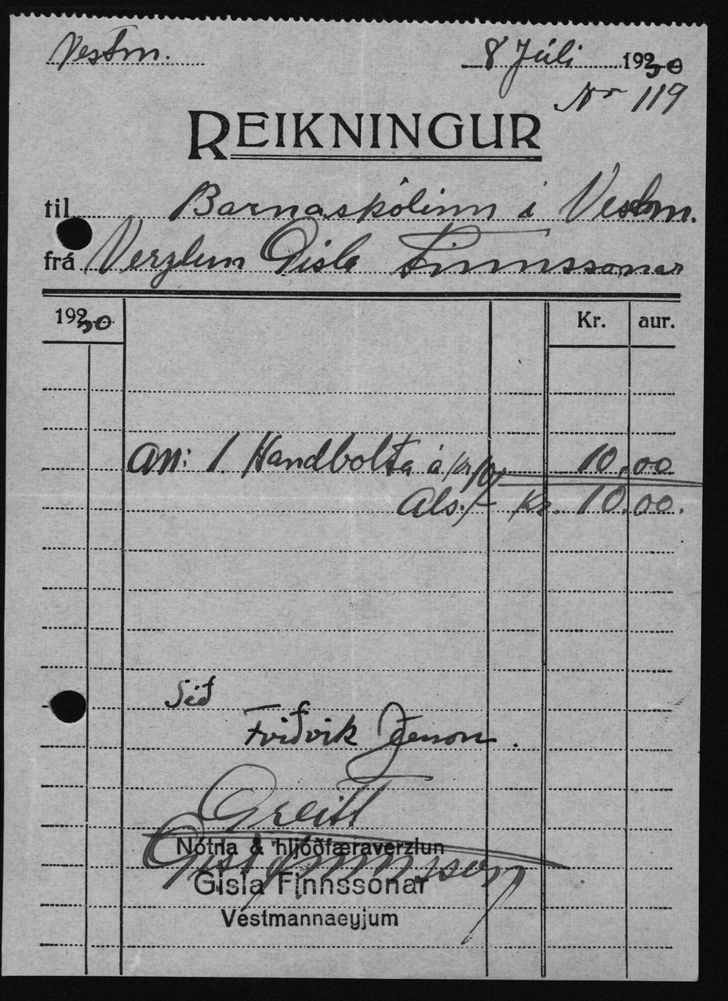 Vestm. 8 Júlí 1930
Nr 119
REIKNINGUR
til Barnaskólinn í Vestm.
frá Verzlun Gísla Finnssonar
1930 Kr. aur.
an: 1 Handbolta á kr 10/- 10.00
Als:/- Kr. 10.00.
Séð
Friðrik Jesson.
Greitt
Gísl Finnsson
Nótna & hljóðfæraverzlun
Gísla Finnssonar
Vestmannaeyjum